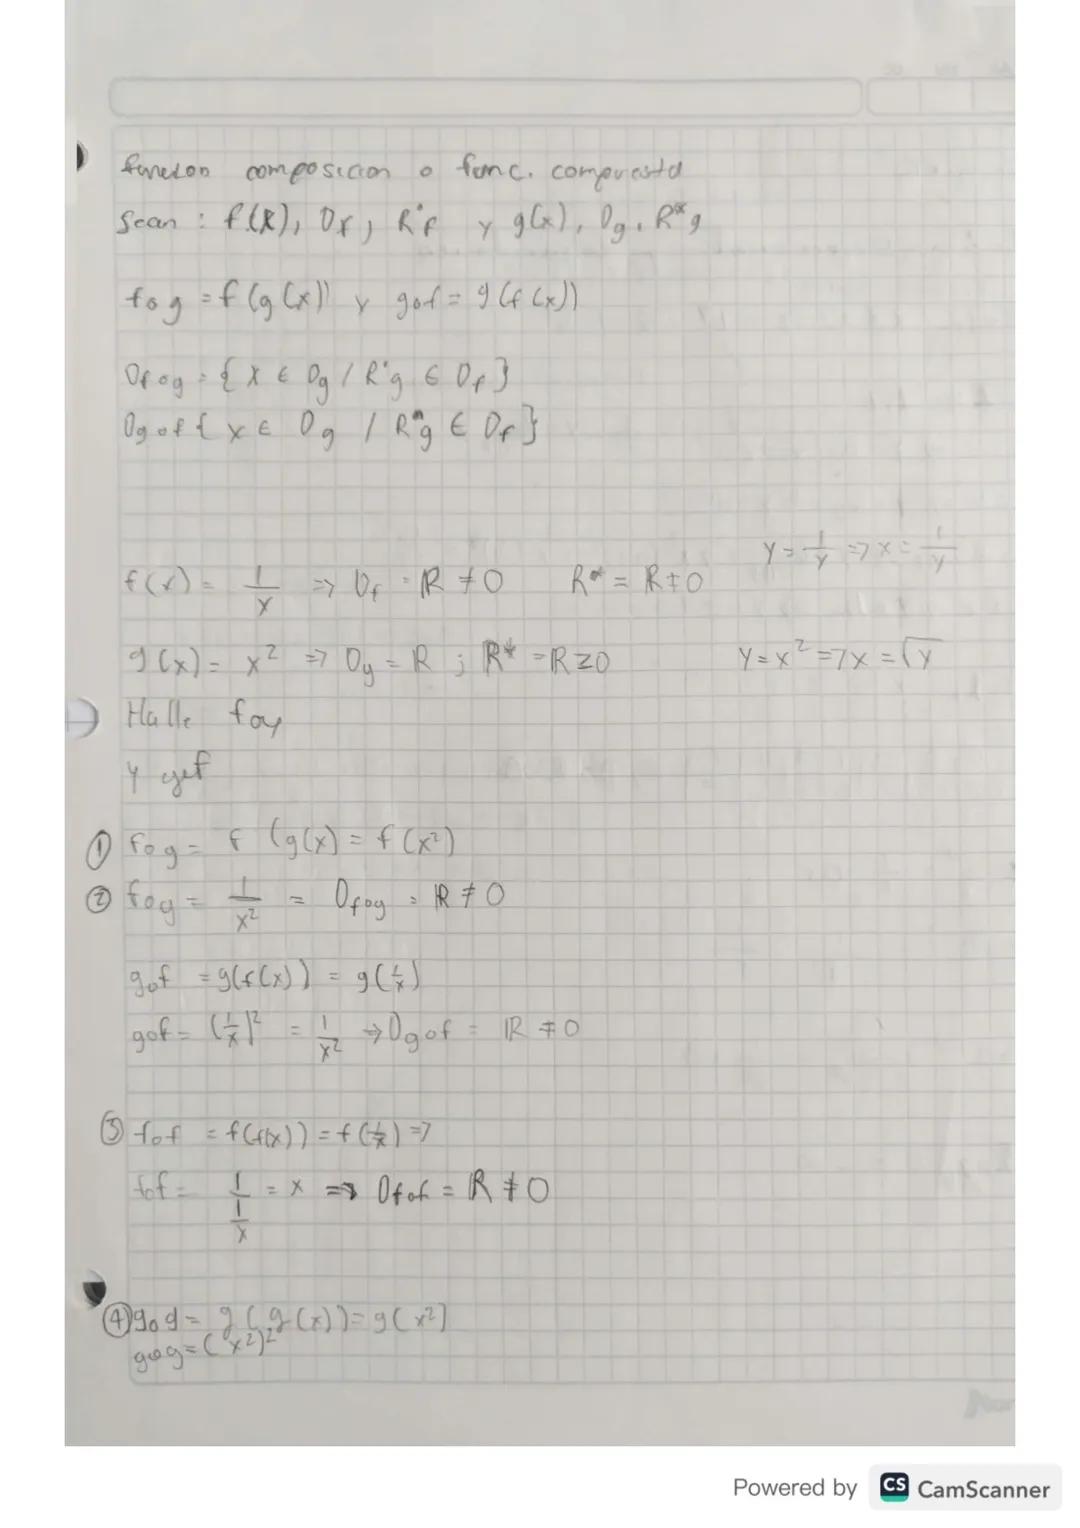 función composicion o func. compuesta
Sean : f(x), Df, R*f y g(x), Dg, R*g
fog = f(g(x)) y gof = g(f(x))
Dfog = { x ∈ Dg / R*g ∈ Df }
Dgof { x ∈ Dg / R*g ∈ Df }
y = 1/y => x = 1/y
f(x) = 1/x => Df = ℝ ≠ 0 R* = ℝ ≠ 0
g(x) = x² => Dg = ℝ ; R* = ℝ ≥ 0 y = x² => x = √y
Halle fog
y gof
① fog = f (g(x) = f (x²)
② fog = 1/x² = Dfog = ℝ ≠ 0
gof = g(f(x)) = g(1/x)
gof = (1/x)² = 1/x² => Dgof = ℝ ≠ 0
③ fof = f(f(x)) = f(1/x) =>
fof = 1/(1/x) = x => Dfof = ℝ ≠ 0
④ gog = g (g(x)) = g(x²)
gog = (x²)²
Nor
Powered by CS CamScanner